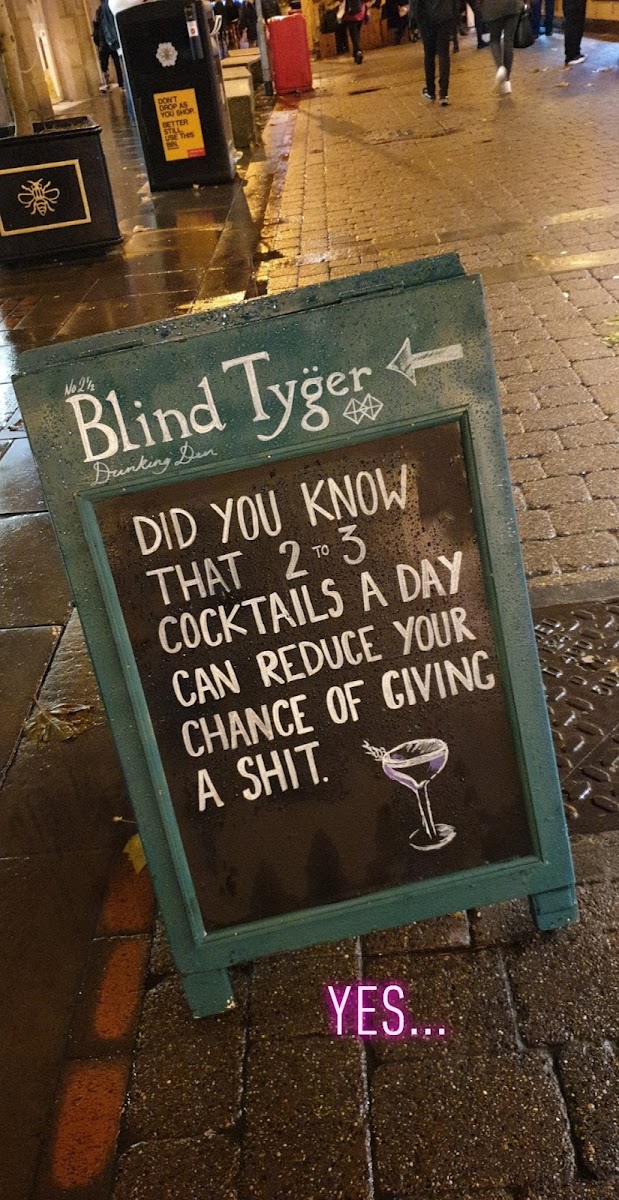 DON'T
DROP AS
YOU SHOP.
BETTER
STILL,
USE THIS
BIN.
No 2½
Blind Tyger
Drinking Den
DID YOU KNOW
THAT 2 TO 3
COCKTAILS A DAY
CAN REDUCE YOUR
CHANCE OF GIVING
A SHIT.
YES...